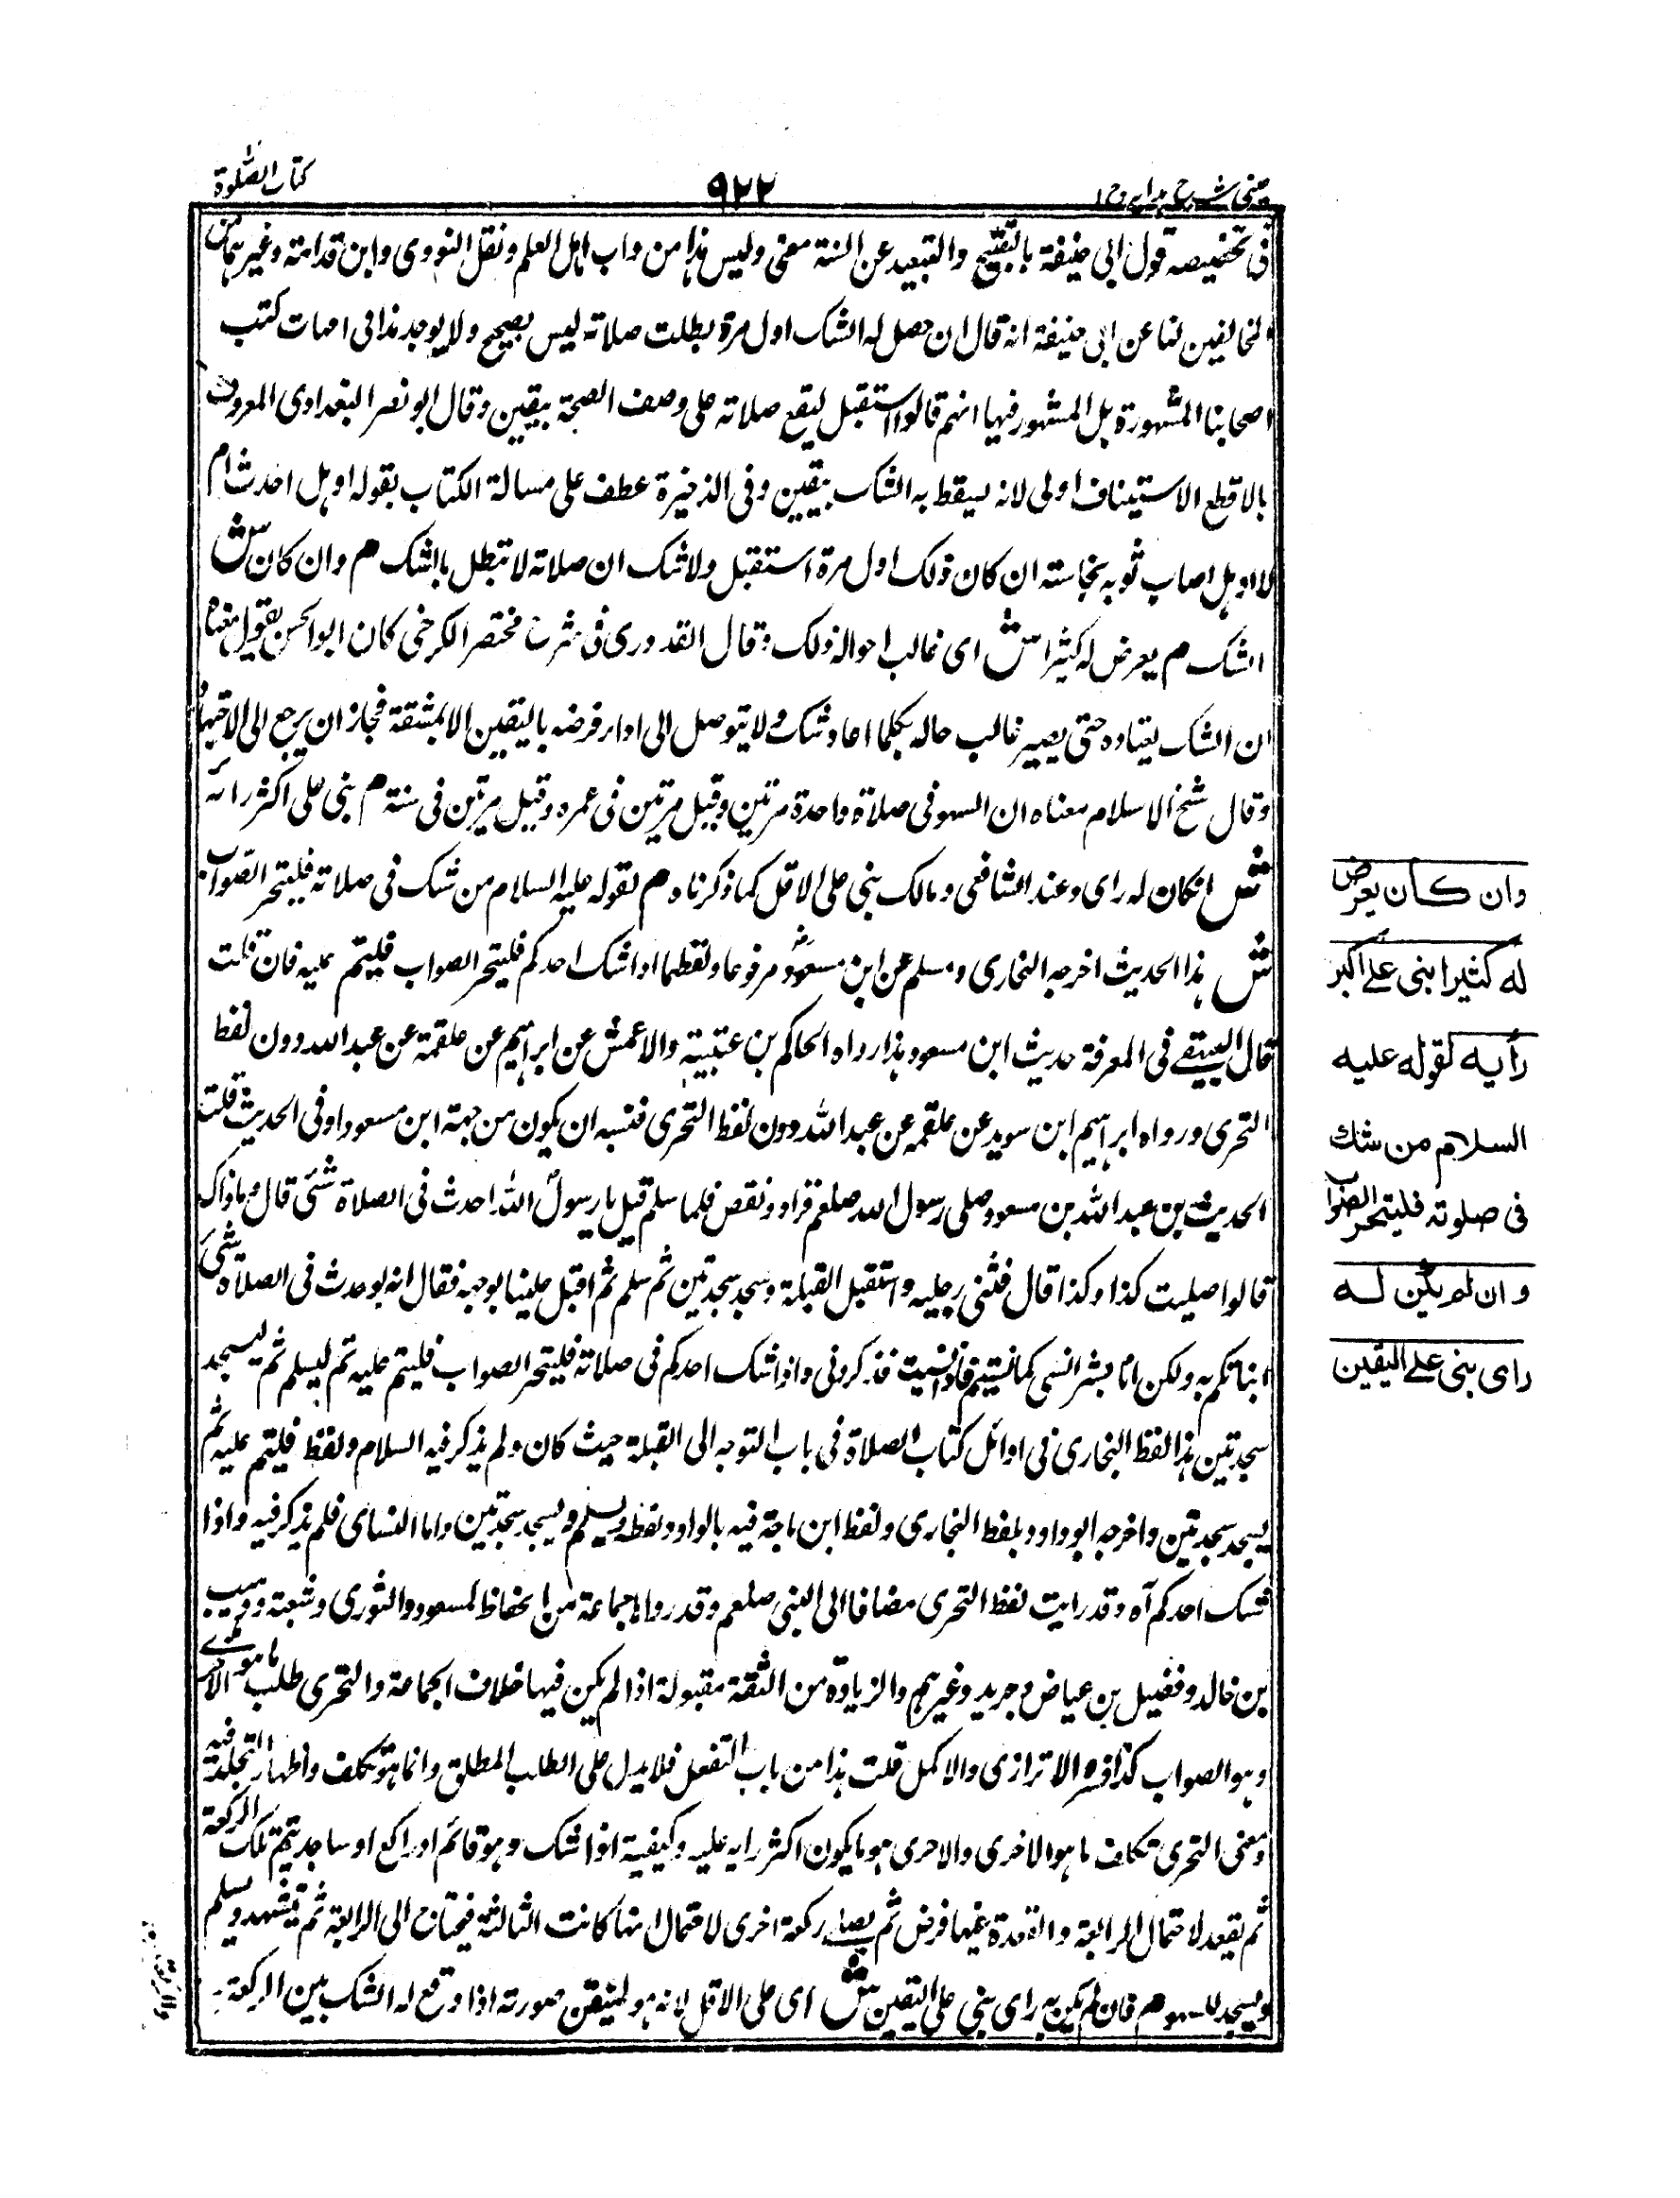 عینی شرح ہدایہ ج ۱
۹۲۲
کتاب الصلوة
فی تخصیصه قول ابی حنیفة بالتقبیح والتبعید عن السنة معنی ولیس هذا من داب اهل العلم ونقل النووی وابن قدامة وغیرهما من
المخالفین لنا عن ابی حنیفة انه قال ان حصل له الشک اول مرة بطلت صلاته لیس بصحیح ولا یوجد هذا فی امهات کتب
اصحابنا المشهورة بل المشهور فیها انهم قالوا استقبل لیقع صلاته علی وصف الصحة بیقین وقال ابو نصر البغدادی المعروف
بالاقطع الاستیناف اولی لانه یسقط به الشک بیقین وفی الذخیرة عطف علی مسالة الکتاب بقوله او هل احدث ام
لا او هل اصاب ثوبه نجاسته ان کان ذلک اول مرة استقبل ولا شک ان صلاته لا تبطل بالشک م وان کان ش
الشک م یعرض له کثیرا ش ای غالب احواله ذلک وقال القدوری فی شرح مختصر الکرخی کان ابو الحسن یقول معناه
ان الشک یعتاده حتی یصیر غالب حاله بکلما اعاد شک ولا یتوصل الی اداء فرضه بالیقین الا بمشقة فجاز ان یرجع الی الاجتهاد
وقال شیخ الاسلام معناه ان السهو فی صلاة واحدة مرتین وقیل مرتین فی عمره وقیل مرتین فی سنة م بنی علی اکثر رائه
ش انکان له رای وعند الشافعی ومالک بنی علی الاقل کما ذکرناه م لقوله علیه السلام من شک فی صلاته فلیتحر الصواب
ش هذا الحدیث اخرجه البخاری ومسلم عن ابن مسعود مرفوعا ولفظهما اذا شک احدکم فلیتحر الصواب فلیتم علیه فان قلت
قال البیهقے فی المعرفة حدیث ابن مسعود هذا رواه الحاکم بن عتبیة والاعمش عن ابراهیم عن علقمة عن عبد الله دون لفظ
التحری ورواه ابراهیم ابن سوید عن علقمه عن عبد الله دون لفظ التحری فنسبه ان یکون من جهة ابن مسعود او فی الحدیث قلت
الحدیث بن عبد الله بن مسعود صلی رسول الله صلعم فزاد ونقص فلما سلم قیل یا رسول الله احدث فی الصلاة شئی قال وما ذاک
قالوا صلیت کذا وکذا قال فثنی رجلیه واستقبل القبلة وسجد سجدتین ثم سلم ثم اقبل علینا بوجهه فقال انه لو حدث فی الصلاة شئ
انباتکم به ولکن انا بشر انسی کما تنسیتم فاذا نسیت فذکرونی واذا شک احدکم فی صلاته فلیتحر الصواب فلیتم علیه ثم لیسلم ثم لیسجد
سجدتین هذا لفظ البخاری فی اوائل کتاب الصلاة فی باب التوجه الی القبلة حیث کان ولم یذکر فیه السلام ولفظ فلیتم علیه ثم
یسجد سجدتین واخرجه ابو داود بلفظ البخاری ولفظ ابن ماجة فیه بالواو ولفظه ویسلم ویسجد سجدتین واما النسای فلم یذکر فیه واذا
شک احدکم آه وقد رایت لفظ التحری مضافا الی النبی صلعم وقد رواها جماعة من الحفاظ لمسعود والثوری وشعبة ووهیب
بن خالد وفضیل بن عیاض وجریر وغیرهم والزیادة من الثقة مقبولة اذا لم یکن فیها خلاف الجماعة والتحری طلب ما هو الاحرے
وهو الصواب کذا فسره الاترازی والاکمل قلت هذا من باب التفعل فلا یدل علی الطلب المطلق وانما هو تکلف واظهار التجلد فیه
ومعنی التحری تکلف ما هو الاخری والاحری هو ما یکون اکثر رایه علیه وکیفیة اذا شک وهو قائم او راکع او ساجد یتم تلک الرکعة
ثم یقعد لاحتمال الرابعة والقعدة فیها فرض ثم یصلے رکعة اخری لاحتمال انها کانت الثالثة فیحتاج الی الرابعة ثم یتشهد ویسلم
ویسجد للسهو م فان لم یکن به رای بنی علی الیقین ش ای علی الاقل لانه هو لمتیقن صورته اذا وقع له الشک بین الرکعة
وان کان یعرض
له کثیرا بنی علے اکبر
رأیه لقوله علیه
السلام من شك
فی صلوته فلیتحر الصواب
وان لم یکن له
رای بنی علے الیقین